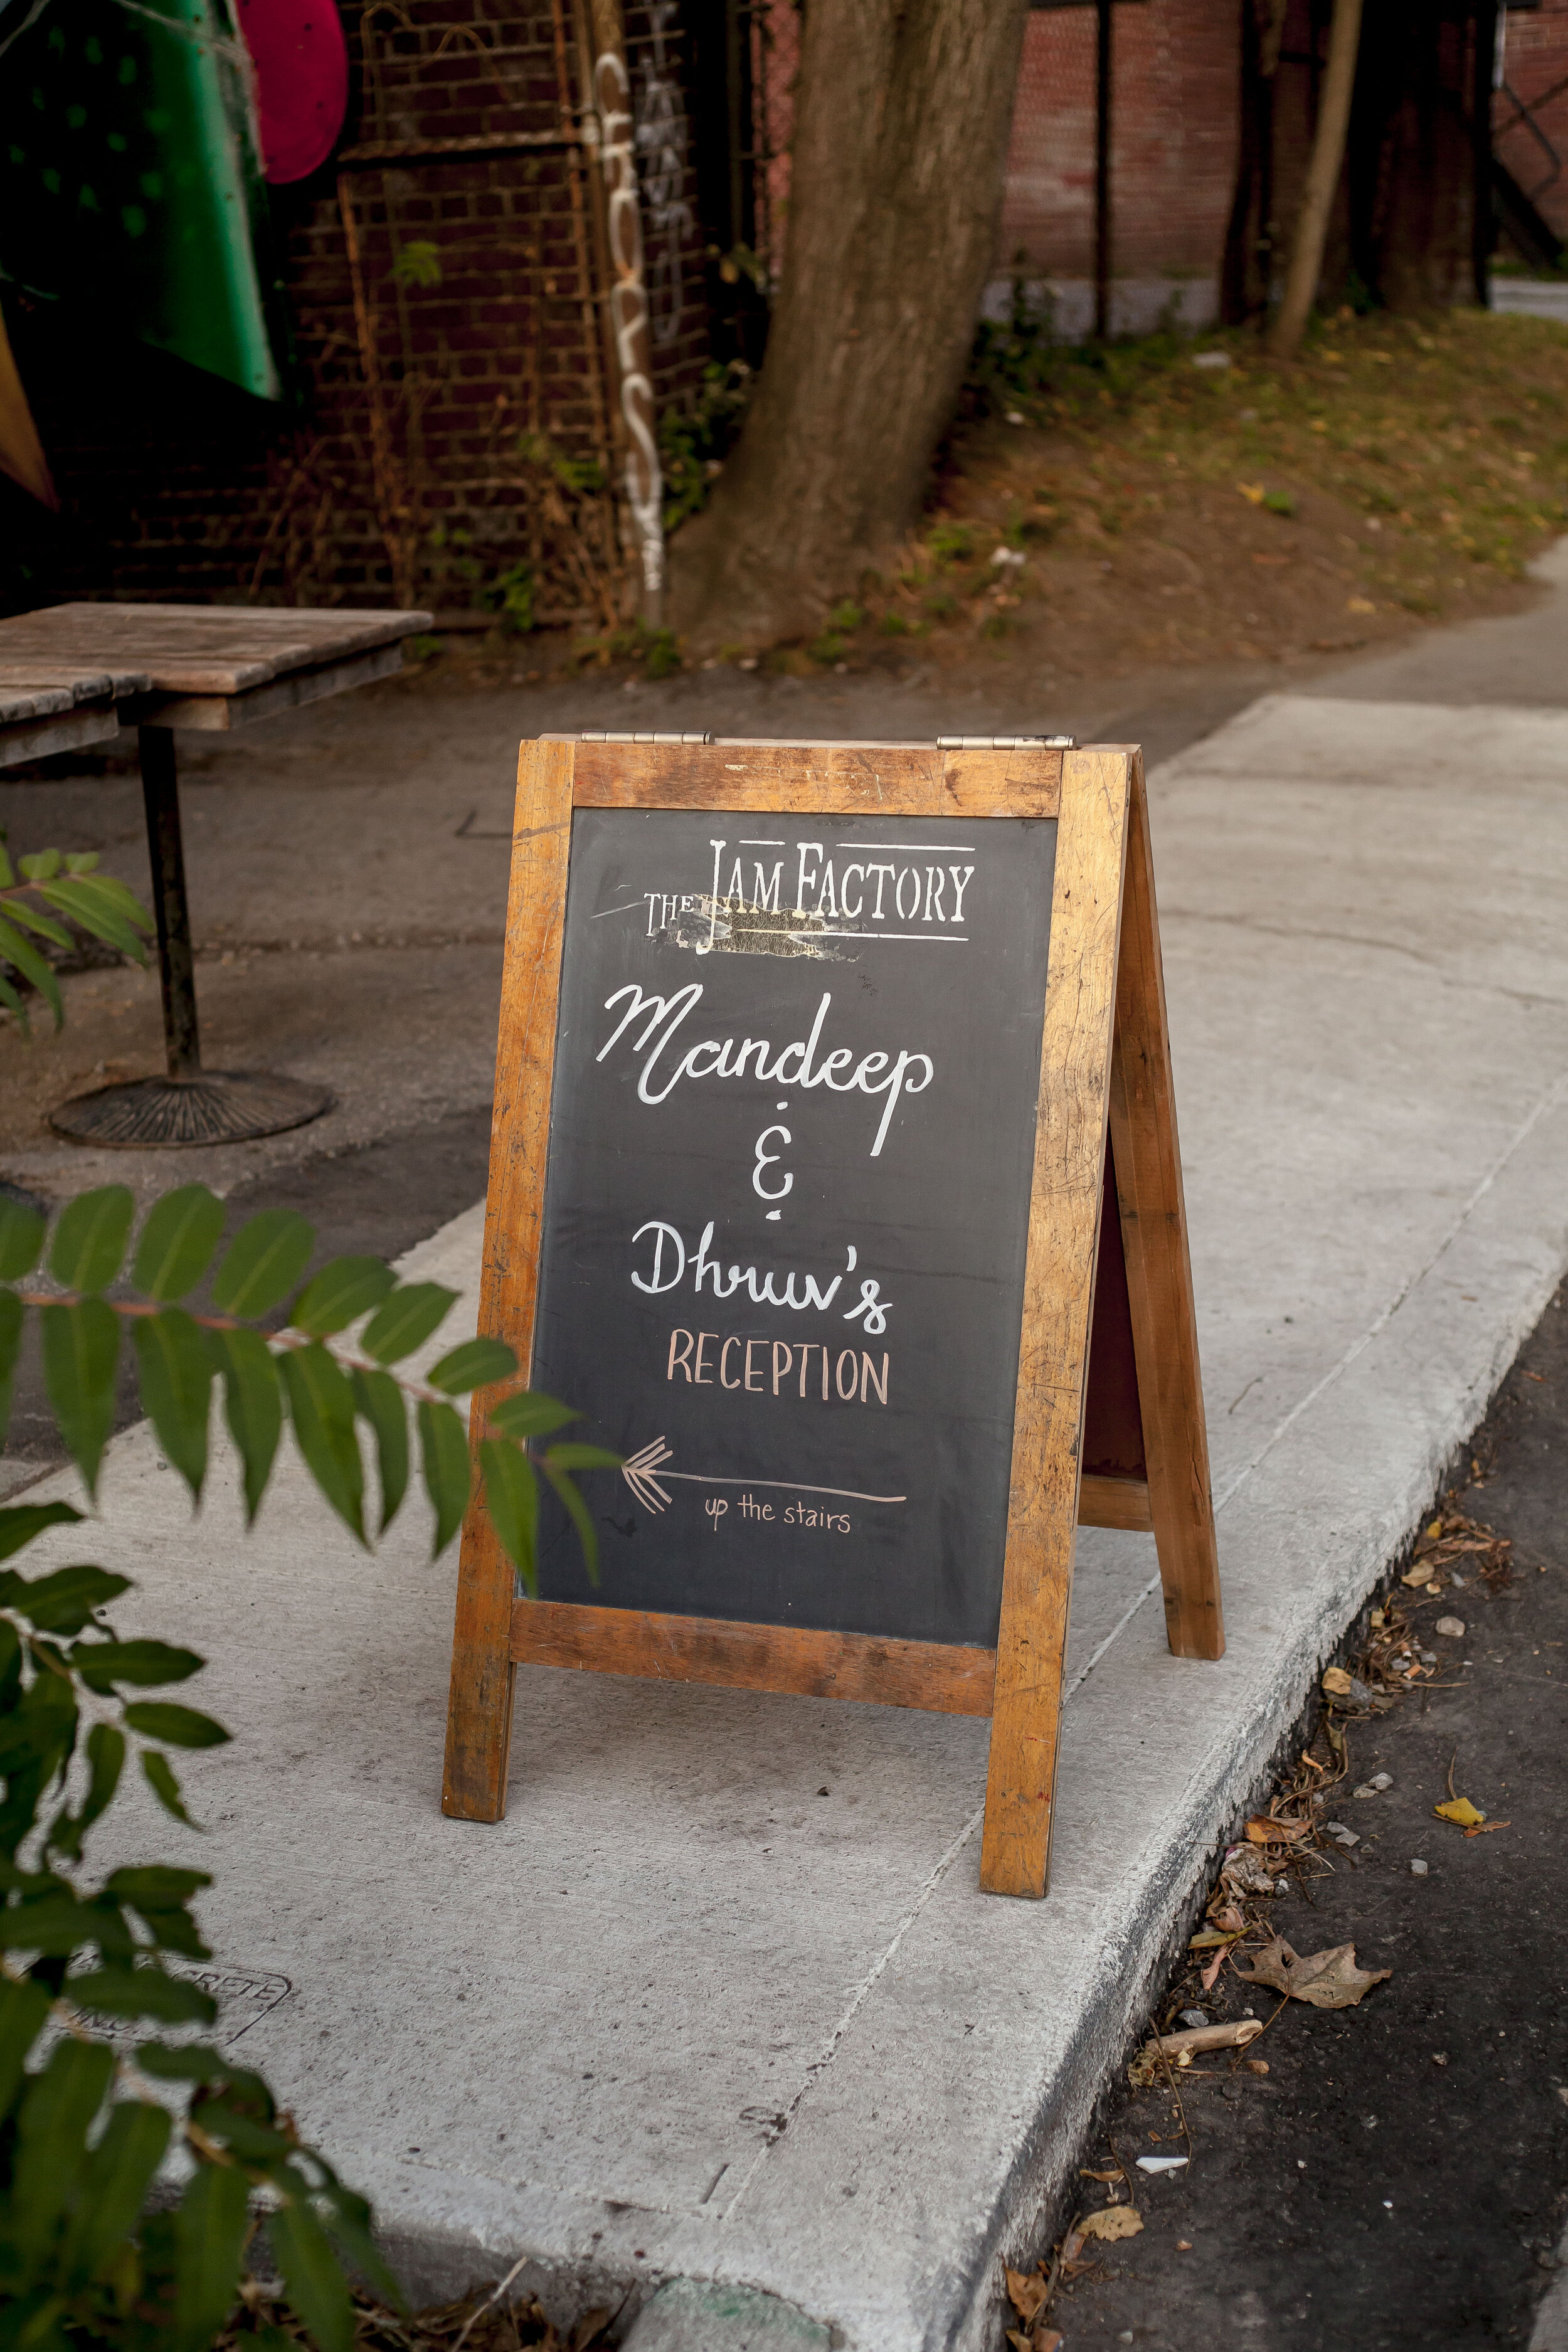 THE JAM FACTORY
Mandeep
&
Dhruv's
RECEPTION
up the stairs